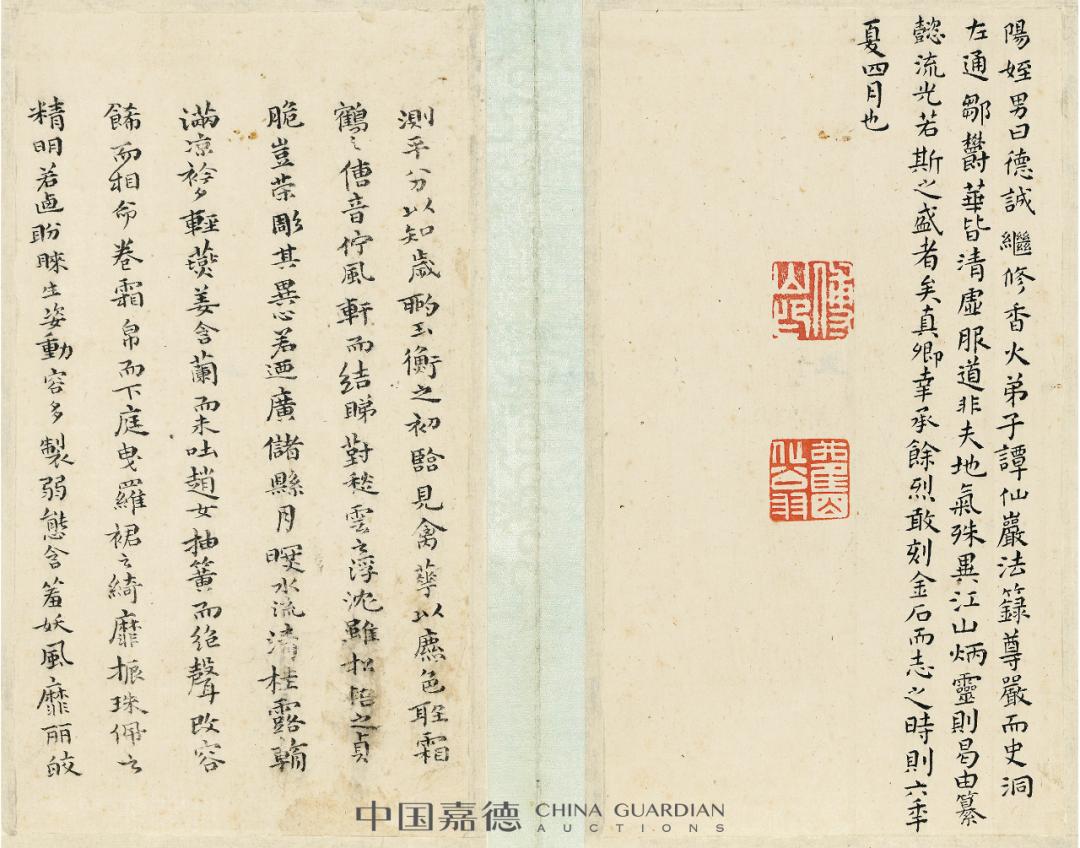 陽姪男曰德誠繼修香火弟子譚仙巖法籙尊嚴而史洞
左通鄒鬱華皆清虛服道非夫地氣殊異江山炳靈則曷由纂
懿流光若斯之盛者矣真卿幸承餘烈敢刻金石而志之時則六年
夏四月也
測平分以知歲酌玉衡之初臨見禽華以麃色聽霜
鶴之傳音佇風軒而結睇對愁雲之浮沈雖松筠之貞
脆豈榮彫其異心若迺廣儲縣月暉水流清桂露朝
滿涼衿夕輕燕姜含蘭而未吐趙女抽簧而絕聲改容
餙而相命卷霜帛而下庭曳羅裙之綺靡振珠佩之
精明若迺盼睞生姿動容多製弱態含羞妖風靡丽皎
中国嘉德 CHINA GUARDIAN
AUCTIONS